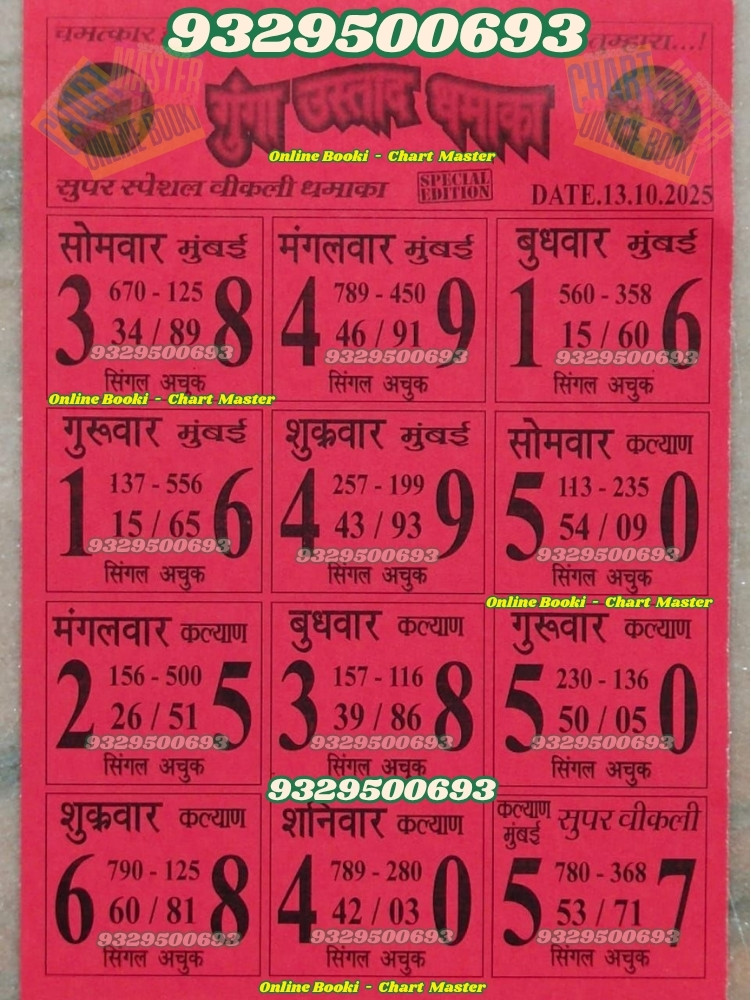 चमत्कार
9329500693
तुम्हारा...!
गुंगा उस्ताद धमाका
CHART MASTER
ONLINE BOOKI
CHART MASTER
ONLINE BOOKI
Online Booki - Chart Master
सुपर स्पेशल वीकली धमाका
SPECIAL EDITION
DATE.13.10.2025
सोमवार मुंबई
3 670 - 125 8
34 / 89
9329500693
सिंगल अचुक
मंगलवार मुंबई
4 789 - 450 9
46 / 91
9329500693
सिंगल अचुक
बुधवार मुंबई
1 560 - 358 6
15 / 60
9329500693
सिंगल अचुक
Online Booki - Chart Master
गुरूवार मुंबई
1 137 - 556 6
15 / 65
9329500693
सिंगल अचुक
शुक्रवार मुंबई
4 257 - 199 9
43 / 93
9329500693
सिंगल अचुक
सोमवार कल्याण
5 113 - 235 0
54 / 09
9329500693
सिंगल अचुक
Online Booki - Chart Master
मंगलवार कल्याण
2 156 - 500 5
26 / 51
9329500693
सिंगल अचुक
बुधवार कल्याण
3 157 - 116 8
39 / 86
9329500693
सिंगल अचुक
गुरूवार कल्याण
5 230 - 136 0
50 / 05
9329500693
सिंगल अचुक
9329500693
शुक्रवार कल्याण
6 790 - 125 8
60 / 81
9329500693
सिंगल अचुक
शनिवार कल्याण
4 789 - 280 0
42 / 03
9329500693
सिंगल अचुक
कल्याण मुंबई सुपर वीकली
5 780 - 368 7
53 / 71
9329500693
सिंगल अचुक
Online Booki - Chart Master